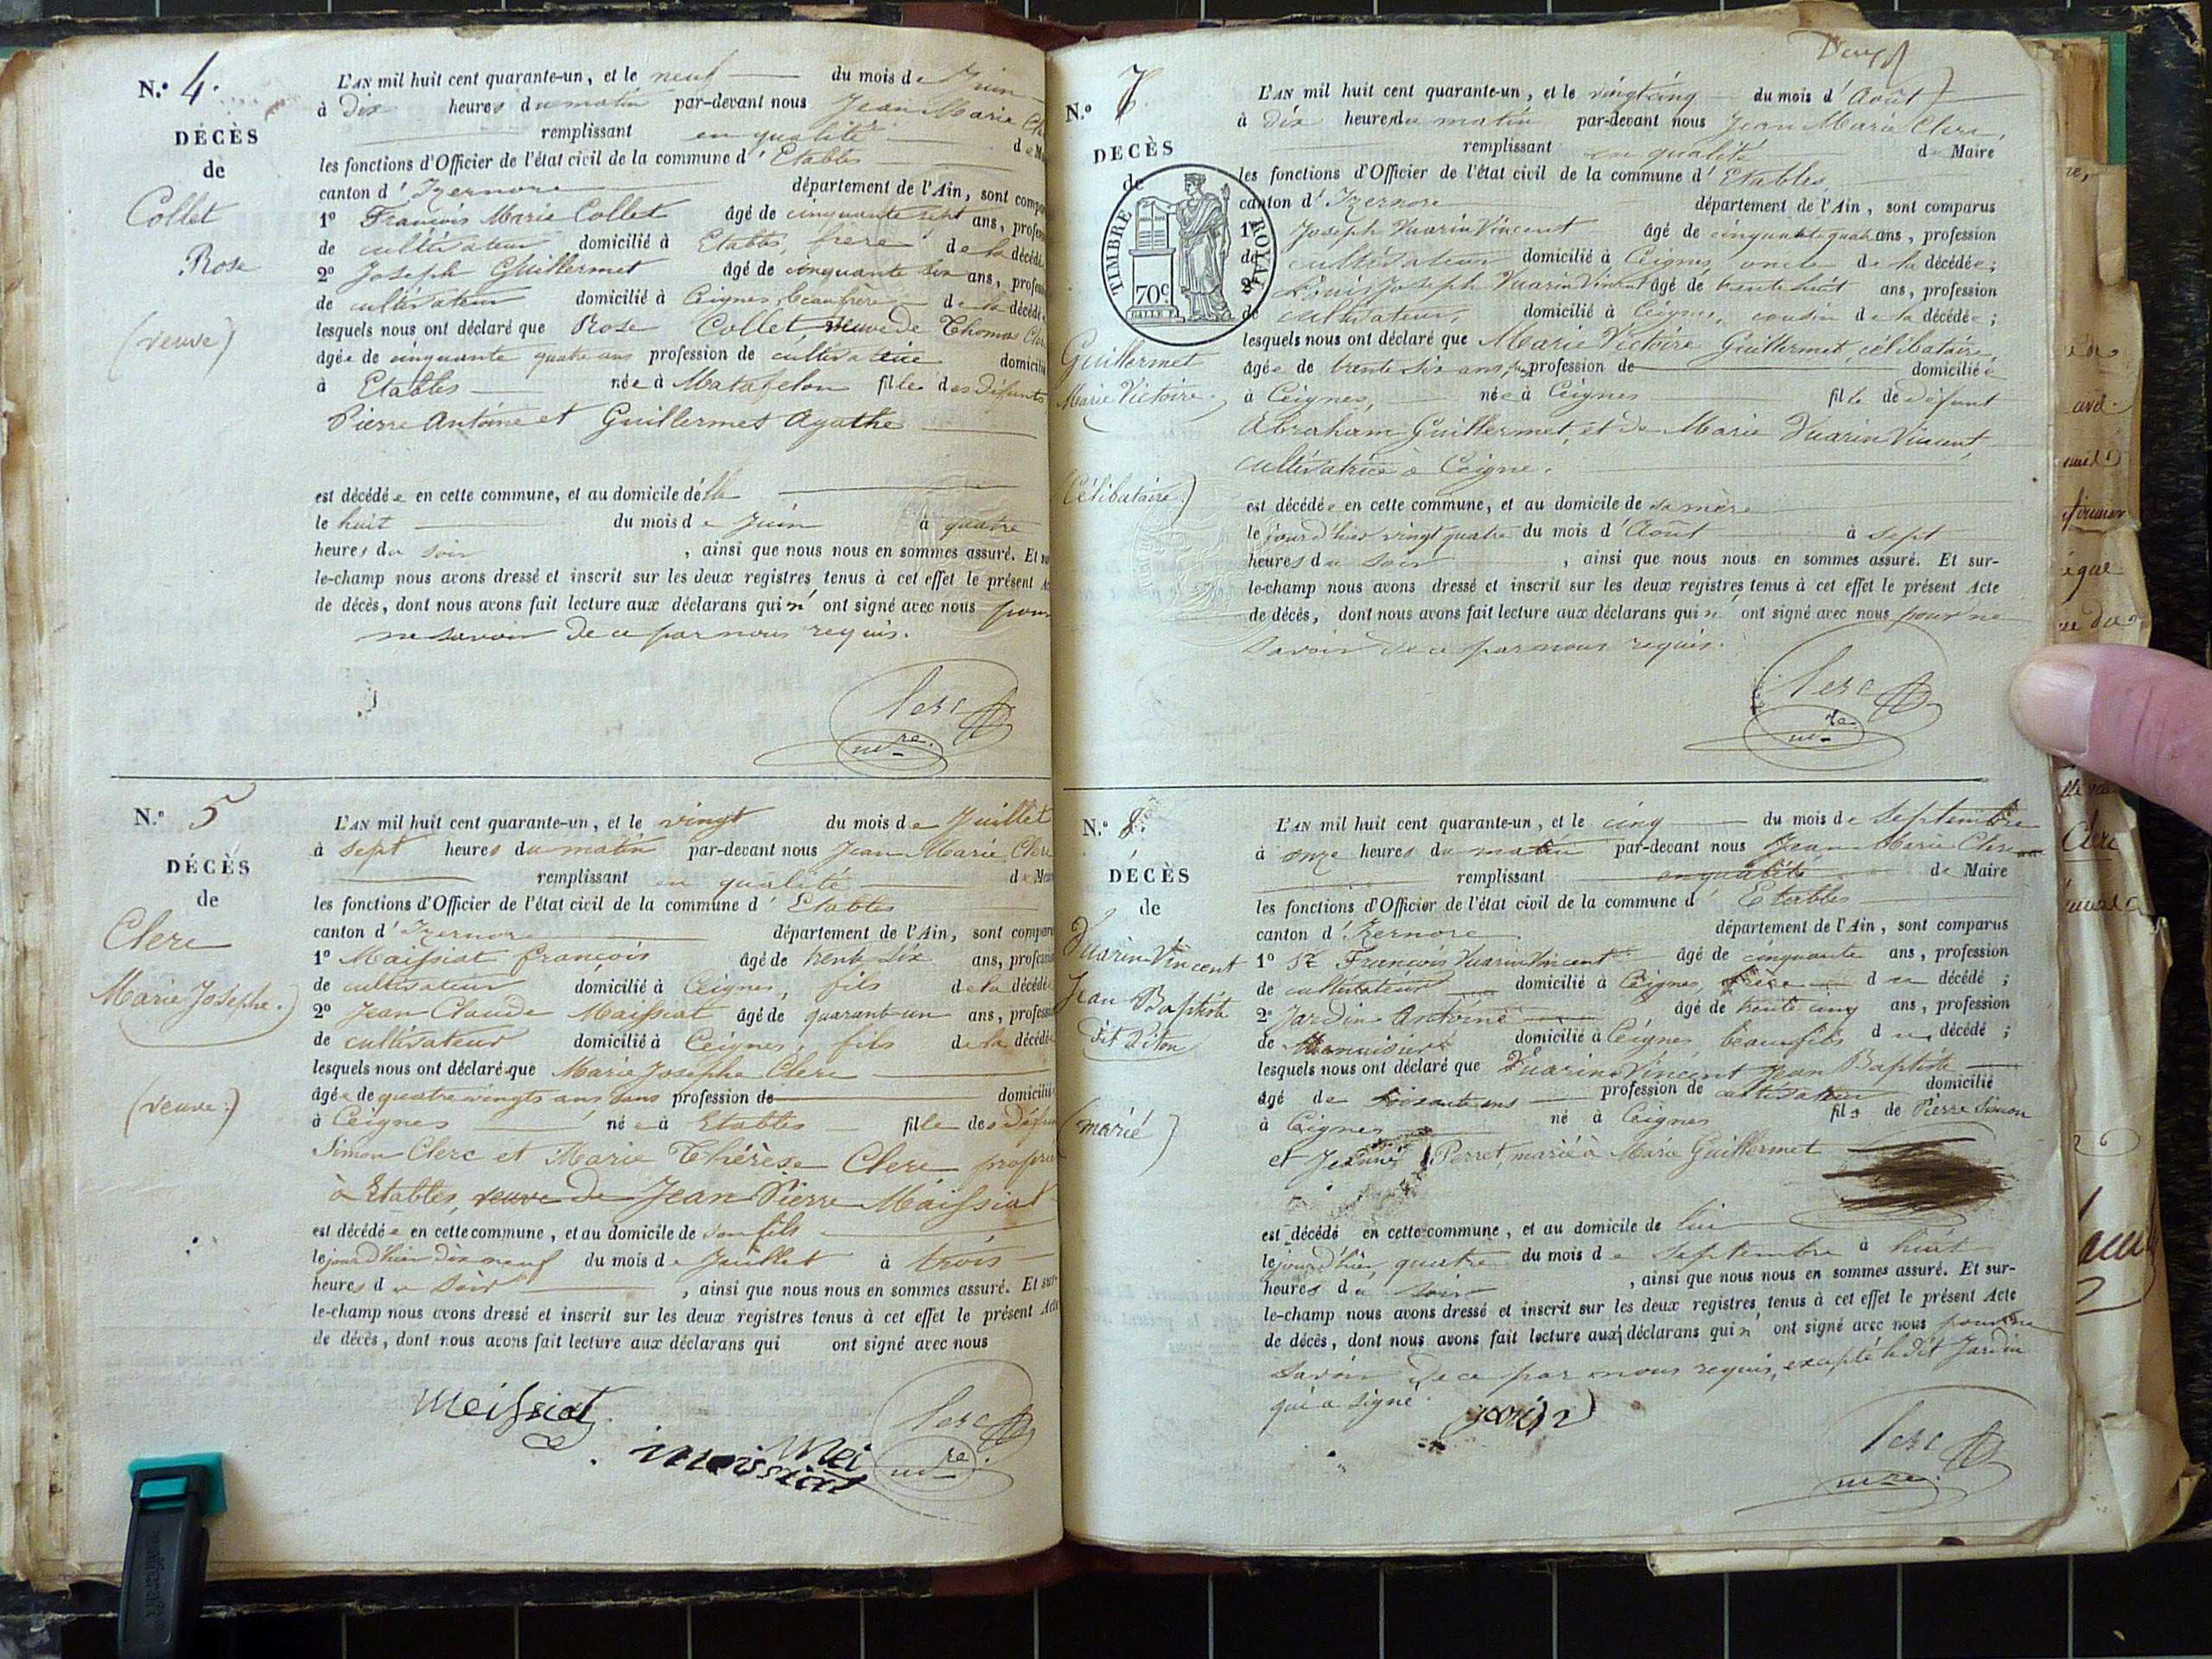 N.o 4.
DÉCÈS
de
Collet
Rose
(veuve)
L'AN mil huit cent quarante-un, et le neuf du mois de Juin
à Dix heures du matin par-devant nous Jean Marie
remplissant en qualité de
les fonctions d'Officier de l'état civil de la commune d'Etables
canton d'Izernore département de l'Ain, sont
1o François Marie Collet âgé de cinquante sept ans,
de cultivateur domicilié à Etables, frère de la décédée
2o Joseph Guillermet âgé de cinquante six ans,
de cultivateur domicilié à Ceignes, beaufrère de la
lesquels nous ont déclaré que Rose Collet veuve de Thomas
âgée de cinquante quatre ans profession de cultivatrice
à Etables née à Matafelon fille des défunts
Pierre Antoine et Guillermet Agathe
est décédée en cette commune, et au domicile d'elle
le huit du mois de Juin à quatre
heures du soir, ainsi que nous nous en sommes assuré. Et
le-champ nous avons dressé et inscrit sur les deux registres tenus à cet effet le présent
de décès, dont nous avons fait lecture aux déclarans qui n'ont signé avec nous pour
ne savoir de ce par nous requis.
Clerc
mre.
N.o 5
DÉCÈS
de
Clerc
Marie Josephe.
(veuve.)
L'AN mil huit cent quarante-un, et le vingt du mois de Juillet
à sept heures du matin par-devant nous Jean Marie Clerc
remplissant en qualité de
les fonctions d'Officier de l'état civil de la commune d'Etables
canton d'Izernore département de l'Ain, sont
1o Maissiat françois âgé de trente six ans,
de cultivateur domicilié à Ceignes, fils de la décédée
2o Jean Claude Maissiat âgé de quarant un ans,
de cultivateur domicilié à Ceignes, fils de la décédée
lesquels nous ont déclaré que Marie Josephe Clerc
âgée de quatre vingts ans sans profession de domiciliée
à Ceignes née à Etables fille des
Simon Clerc et Marie Thérèse Clerc
à Etables, veuve de Jean Pierre Maissiat
est décédée en cette commune, et au domicile de son fils
le jourd'hier dix neuf du mois de Juillet à trois
heures du soir, ainsi que nous nous en sommes assuré. Et sur-
le-champ nous avons dressé et inscrit sur les deux registres tenus à cet effet le présent Acte
de décès, dont nous avons fait lecture aux déclarans qui ont signé avec nous
Meissiat
Mei
meissiat
Clerc
mre.
N.o 7
DECÈS
de
TIMBRE ROYAL
70c
Guillermet
Marie Victoire.
(Célibataire.)
L'AN mil huit cent quarante-un, et le vingt cinq du mois d'Août
à dix heures du matin par-devant nous Jean Marie Clerc,
remplissant en qualité de Maire
les fonctions d'Officier de l'état civil de la commune d'Etables
canton d'Izernore département de l'Ain, sont comparus
1o Joseph Vuarin Vincent âgé de cinquante quatre ans, profession
de cultivateur domicilié à Ceignes, oncle de la décédée;
2o Louis Joseph Vuarin Vincent âgé de trente huit ans, profession
de cultivateur, domicilié à Ceignes, cousin de la décédée;
lesquels nous ont déclaré que Marie Victoire Guillermet, célibataire,
âgée de trente six ans, profession de domiciliée
à Ceignes, née à Ceignes fille de défunt
Abraham Guillermet, et de Marie Vuarin Vincent,
cultivatrice à Ceigne.
est décédée en cette commune, et au domicile de sa mère
le jourd'hier vingt quatre du mois d'Août à sept
heures du soir, ainsi que nous nous en sommes assuré. Et sur-
le-champ nous avons dressé et inscrit sur les deux registres tenus à cet effet le présent Acte
de décès, dont nous avons fait lecture aux déclarans qui n'ont signé avec nous pour ne
savoir de ce par nous requis.
Clerc
mre
N.o 8.
DÉCÈS
de
Vuarin Vincent
Jean Baptiste
(marié)
L'AN mil huit cent quarante-un, et le cinq du mois de Septembre
à onze heures du matin par-devant nous Jean Marie Clerc
remplissant en qualité de Maire
les fonctions d'Officier de l'état civil de la commune d'Etables
canton d'Izernore département de l'Ain, sont comparus
1o François Vuarin Vincent âgé de cinquante ans, profession
de cultivateur domicilié à Ceignes, frère du décédé;
2o Jardin Antoine âgé de trente cinq ans, profession
de Menuisier domicilié à Ceignes, beaufils du décédé;
lesquels nous ont déclaré que Vuarin Vincent Jean Baptiste
âgé de soixante ans profession de cultivateur domicilié
à Ceignes né à Ceignes fils de Pierre Simon
et Jeanne Perret, marié à Marie Guillermet
est décédé en cette commune, et au domicile de lui
le jourd'hier, quatre du mois de Septembre à huit
heures du soir, ainsi que nous nous en sommes assuré. Et sur-
le-champ nous avons dressé et inscrit sur les deux registres tenus à cet effet le présent Acte
de décès, dont nous avons fait lecture aux déclarans qui n'ont signé avec nous pour ne
savoir de ce par nous requis, excepté ledit Jardin
qui a signé.
Clerc
mre.